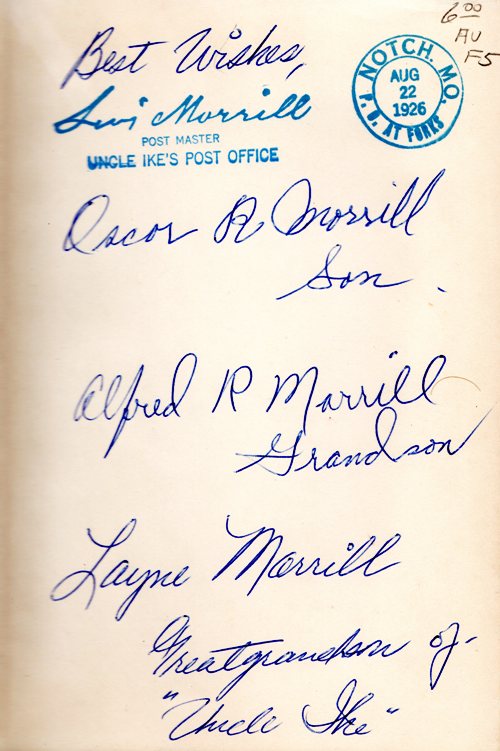 6.00
AU
F5
Best Wishes,
Levi Morrill
POST MASTER
UNCLE IKE'S POST OFFICE
NOTCH, MO.
AUG
22
1926
P. O. AT FORKS
Oscar A Morrill
Son.
Alfred R Morrill
Grandson
Layne Morrill
Greatgrandson of
"Uncle Ike"